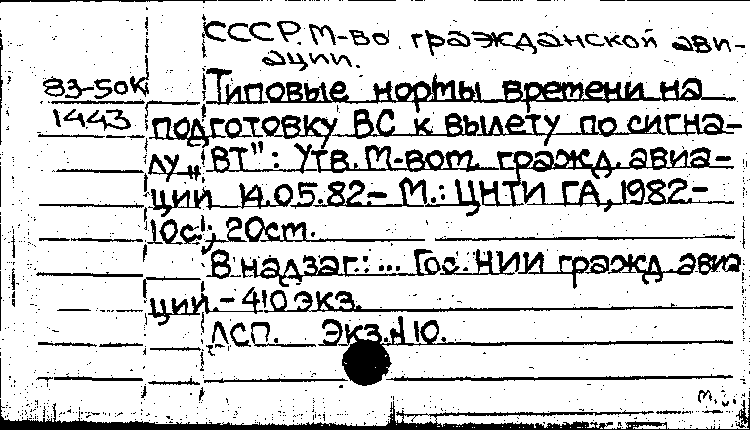 СССР. М-во гражданской ави-
ации.
83-50К Типовые нормы времени на
1443 подготовку ВС к вылету по сигна-
лу „ВТ": Утв. М-вом гражд. авиа-
ции 14.05.82.- М.: ЦНТИ ГА, 1982.-
10с.; 20ст.
В надзаг.: ... Гос. НИИ гражд. авиа
ции. - 410 экз.
ДСП. Экз.N 10.